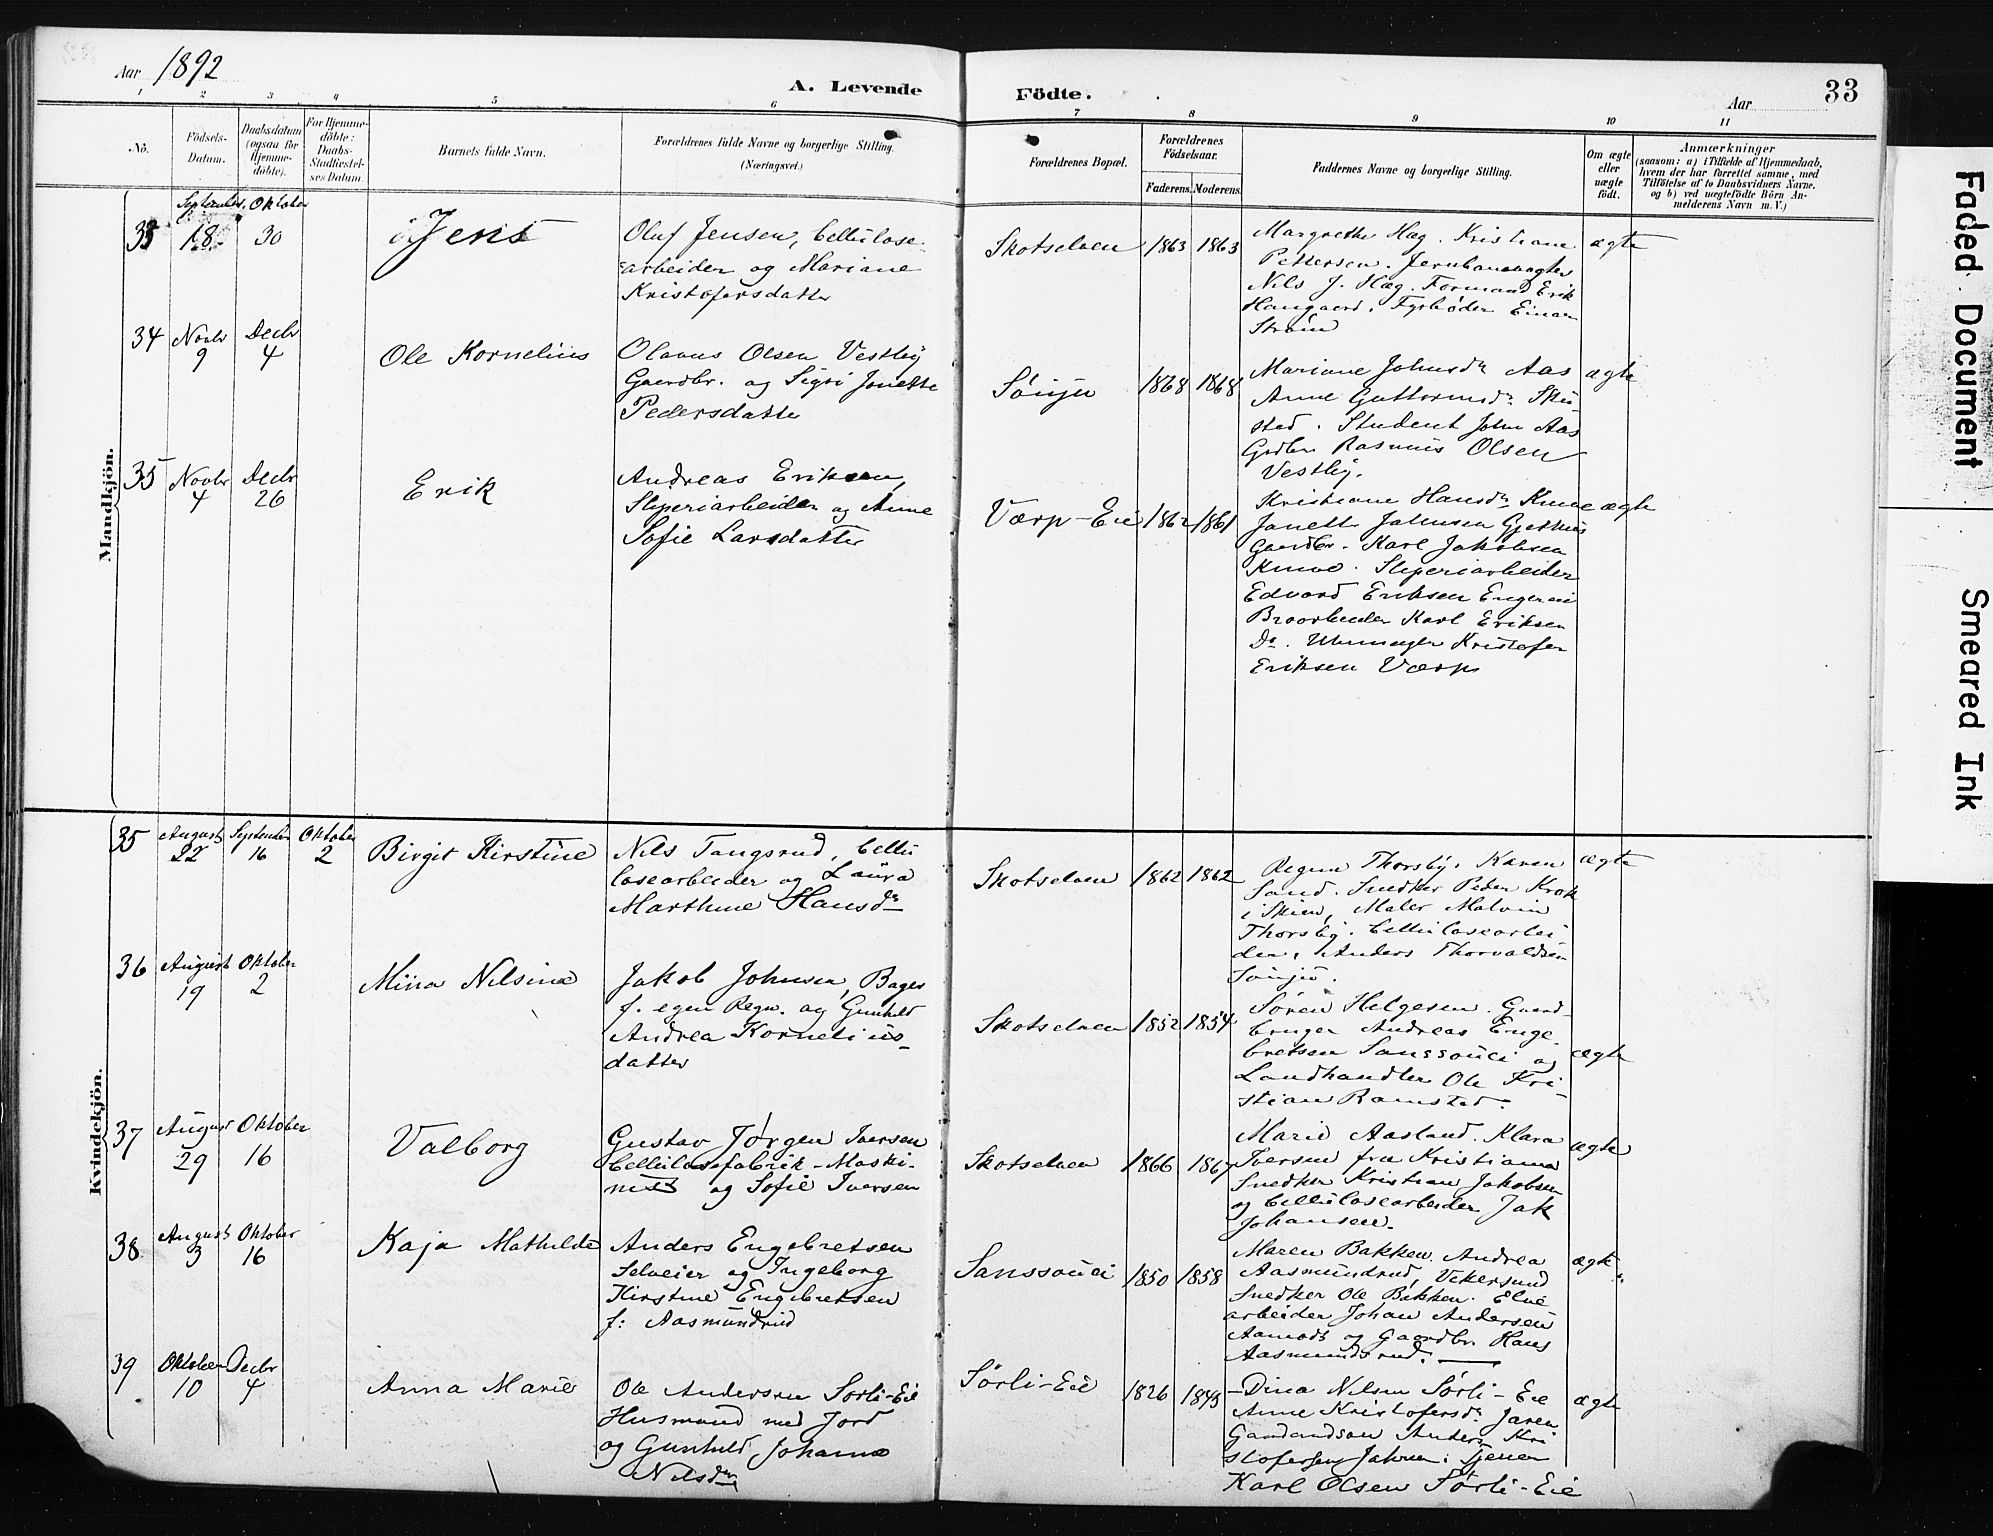 Aar 1892
A. Levende Födte.
Aar 33
1 2 3 4 5 6 7 8 9 10 11
No. Födsels-Datum. Daabsdatum (ogsaa for Hjemmedöbte). For Hjemmedöbte: Daabs-Stadfæstelses Datum. Barnets fulde Navn. Forældrenes fulde Navne og borgerlige Stilling. (Næringsvei.) Forældrenes Bopæl. Forældrenes Födselsaar. Faderens. Moderens. Faddernes Navne og borgerlige Stilling. Om ægte eller uægte födt. Anmærkninger
(saasom: a) i Tilfælde af Hjemmedaab,
hvem der har forrettet samme, med
Tilföielse af to Daabsvidners Navne,
og b) ved uægtefödte Börn Anmelderens Navn m. V.)
Mandkjön.
33 September 18 Oktober 30 Jens
Oluf Jensen, Cellulose-
arbeider og Mariane
Kristofersdatter
Skotselven 1863 1863
Margrethe Hæg. Kristiane
Pettersen. Jernbanevogter
Nils J. Hæg. Formand Erik
Haugaard. Fyrbøder Einar
Strøm
ægte
34 Novbr 9 Decbr 4 Ole Kornelius
Olavus Olsen Vestby
Gaardbr. og Sigri Jonette
Pedersdatter
Sønju 1868 1868
Mariane Johnsdr Aas
Anne Guttormsdr Ski-
stad. Student John Aas
Grdbr Rasmus Olsen
Vestby.
ægte
35 Novbr 4 Decbr 26 Erik
Andreas Eriksen,
Sliperiarbeider og Anne
Sofie Larsdatter
Værp-Eie 1862 1861
Kristiane Hansdr Knive
Janette Johnsen Gjethus
Gaardbr. Karl Jakobsen
Knive. Sliperiarbeider
Edvard Eriksen Engerei
Broarbeider Karl Eriksen
Do. Uhrmager Kristofer
Eriksen Værp
ægte
Kvindekjön.
35 August 22 September 16 Oktober 2 Birgit Kirstine
Nils Tangsrud, Cellu
losearbeider og Laura
Marthine Hansdr
Skotselven 1862 1862
Regine Thorsby. Karen
Sand. Snedker Peder Krok
i Skien, Maler Malvin
Thorsby. Cellulosearbei
der, Anders Thorvaldsen
Sønjø.
ægte
36 August 19 Oktober 2 Mina Nilsine
Jakob Johnsen, Bager
f. egen Regn. og Gunhild
Andrea Kornelius-
datter
Skotselven 1852 1854
Søren Helgesen. Gaard-
bruger Andreas Enge-
bretsen Sanssouci og
Landhandler Ole Kri-
stian Ramstad.
ægte
37 August 29 Oktober 16 Valborg
Gustav Jørgen Iversen
Cellulosefabrik-Maski-
nist og Sofie Iversen
Skotselven 1866 1867
Marie Aasland. Klara
Iversen fra Kristiania
Snedker Kristian Jakobsen
og Cellulosearbeider Jak
Johansen.
ægte
38 August 3 Oktober 16 Kaja Mathilde
Anders Engebretsen
Selveier og Ingeborg
Kirstine Engebretsen
f: Aasmundrud
Sanssouci 1850 1858
Maren Bakken. Andrea
Aasmundrud, Vikersund
Snedker Ole Bakken. Elve
arbeider Johan Andersen
Aamodt og Gaardbr. Hans
Aasmundsrud.
ægte
39 Oktober 10 Decbr 4 Anna Marie
Ole Andersen Sørli-Eie
Husmand med Jord
og Gunhild Johanne
Nilsdtr
Sørli-Eie 1826 1849
Dina Nilsen Sørli-Eie
Anne Kristofersdr Jaren
Gaardmandsøn Anders Kri
stofersen Jahren. Tjener
Karl Olsen Sørli-Eie
ægte
Faded Document
Smeared Ink